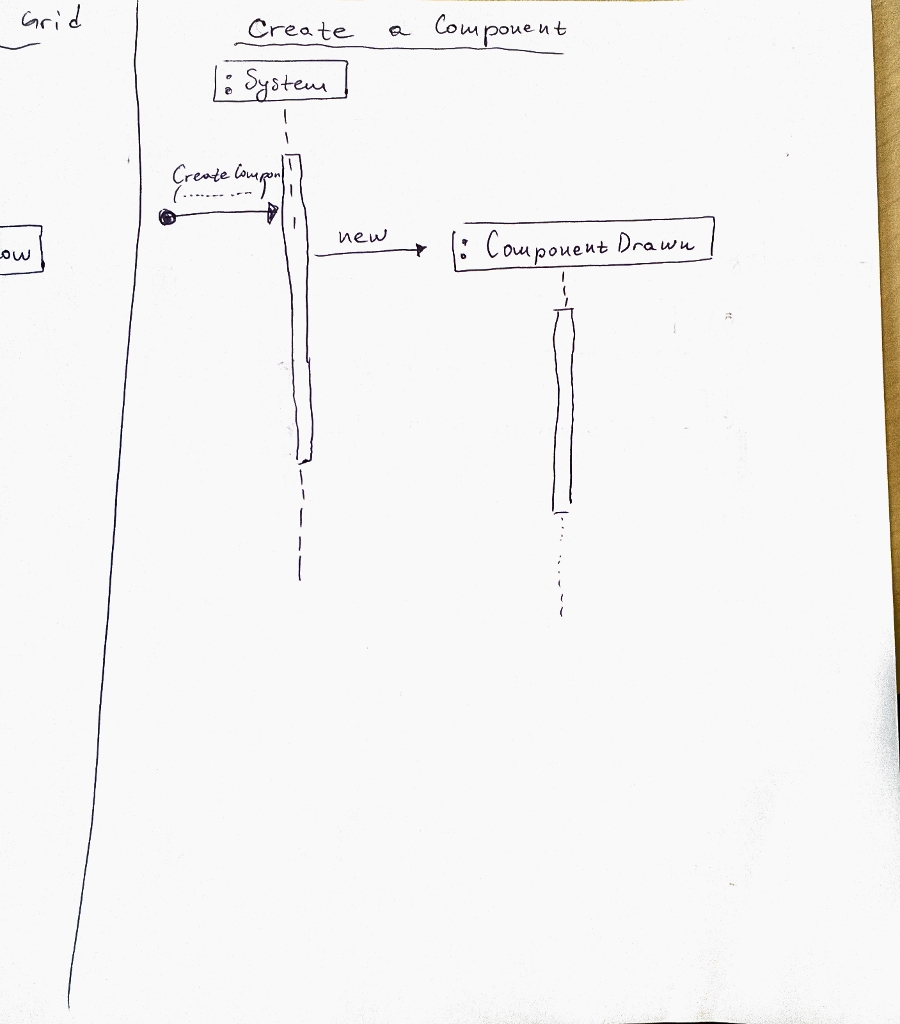 Grid
ow
Create a Component
: System
Create Compon
(......... --- )
new
: Component Drawn